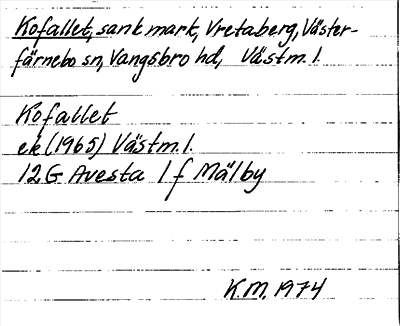 Kofallet, sank mark, Vretaberg, Väster-
färnebo sn, Vangsbro hd, Västm. l.
Kofallet
ek (1965) Västm. l.
12 G Avesta 1 f Mälby
K.M. 1974